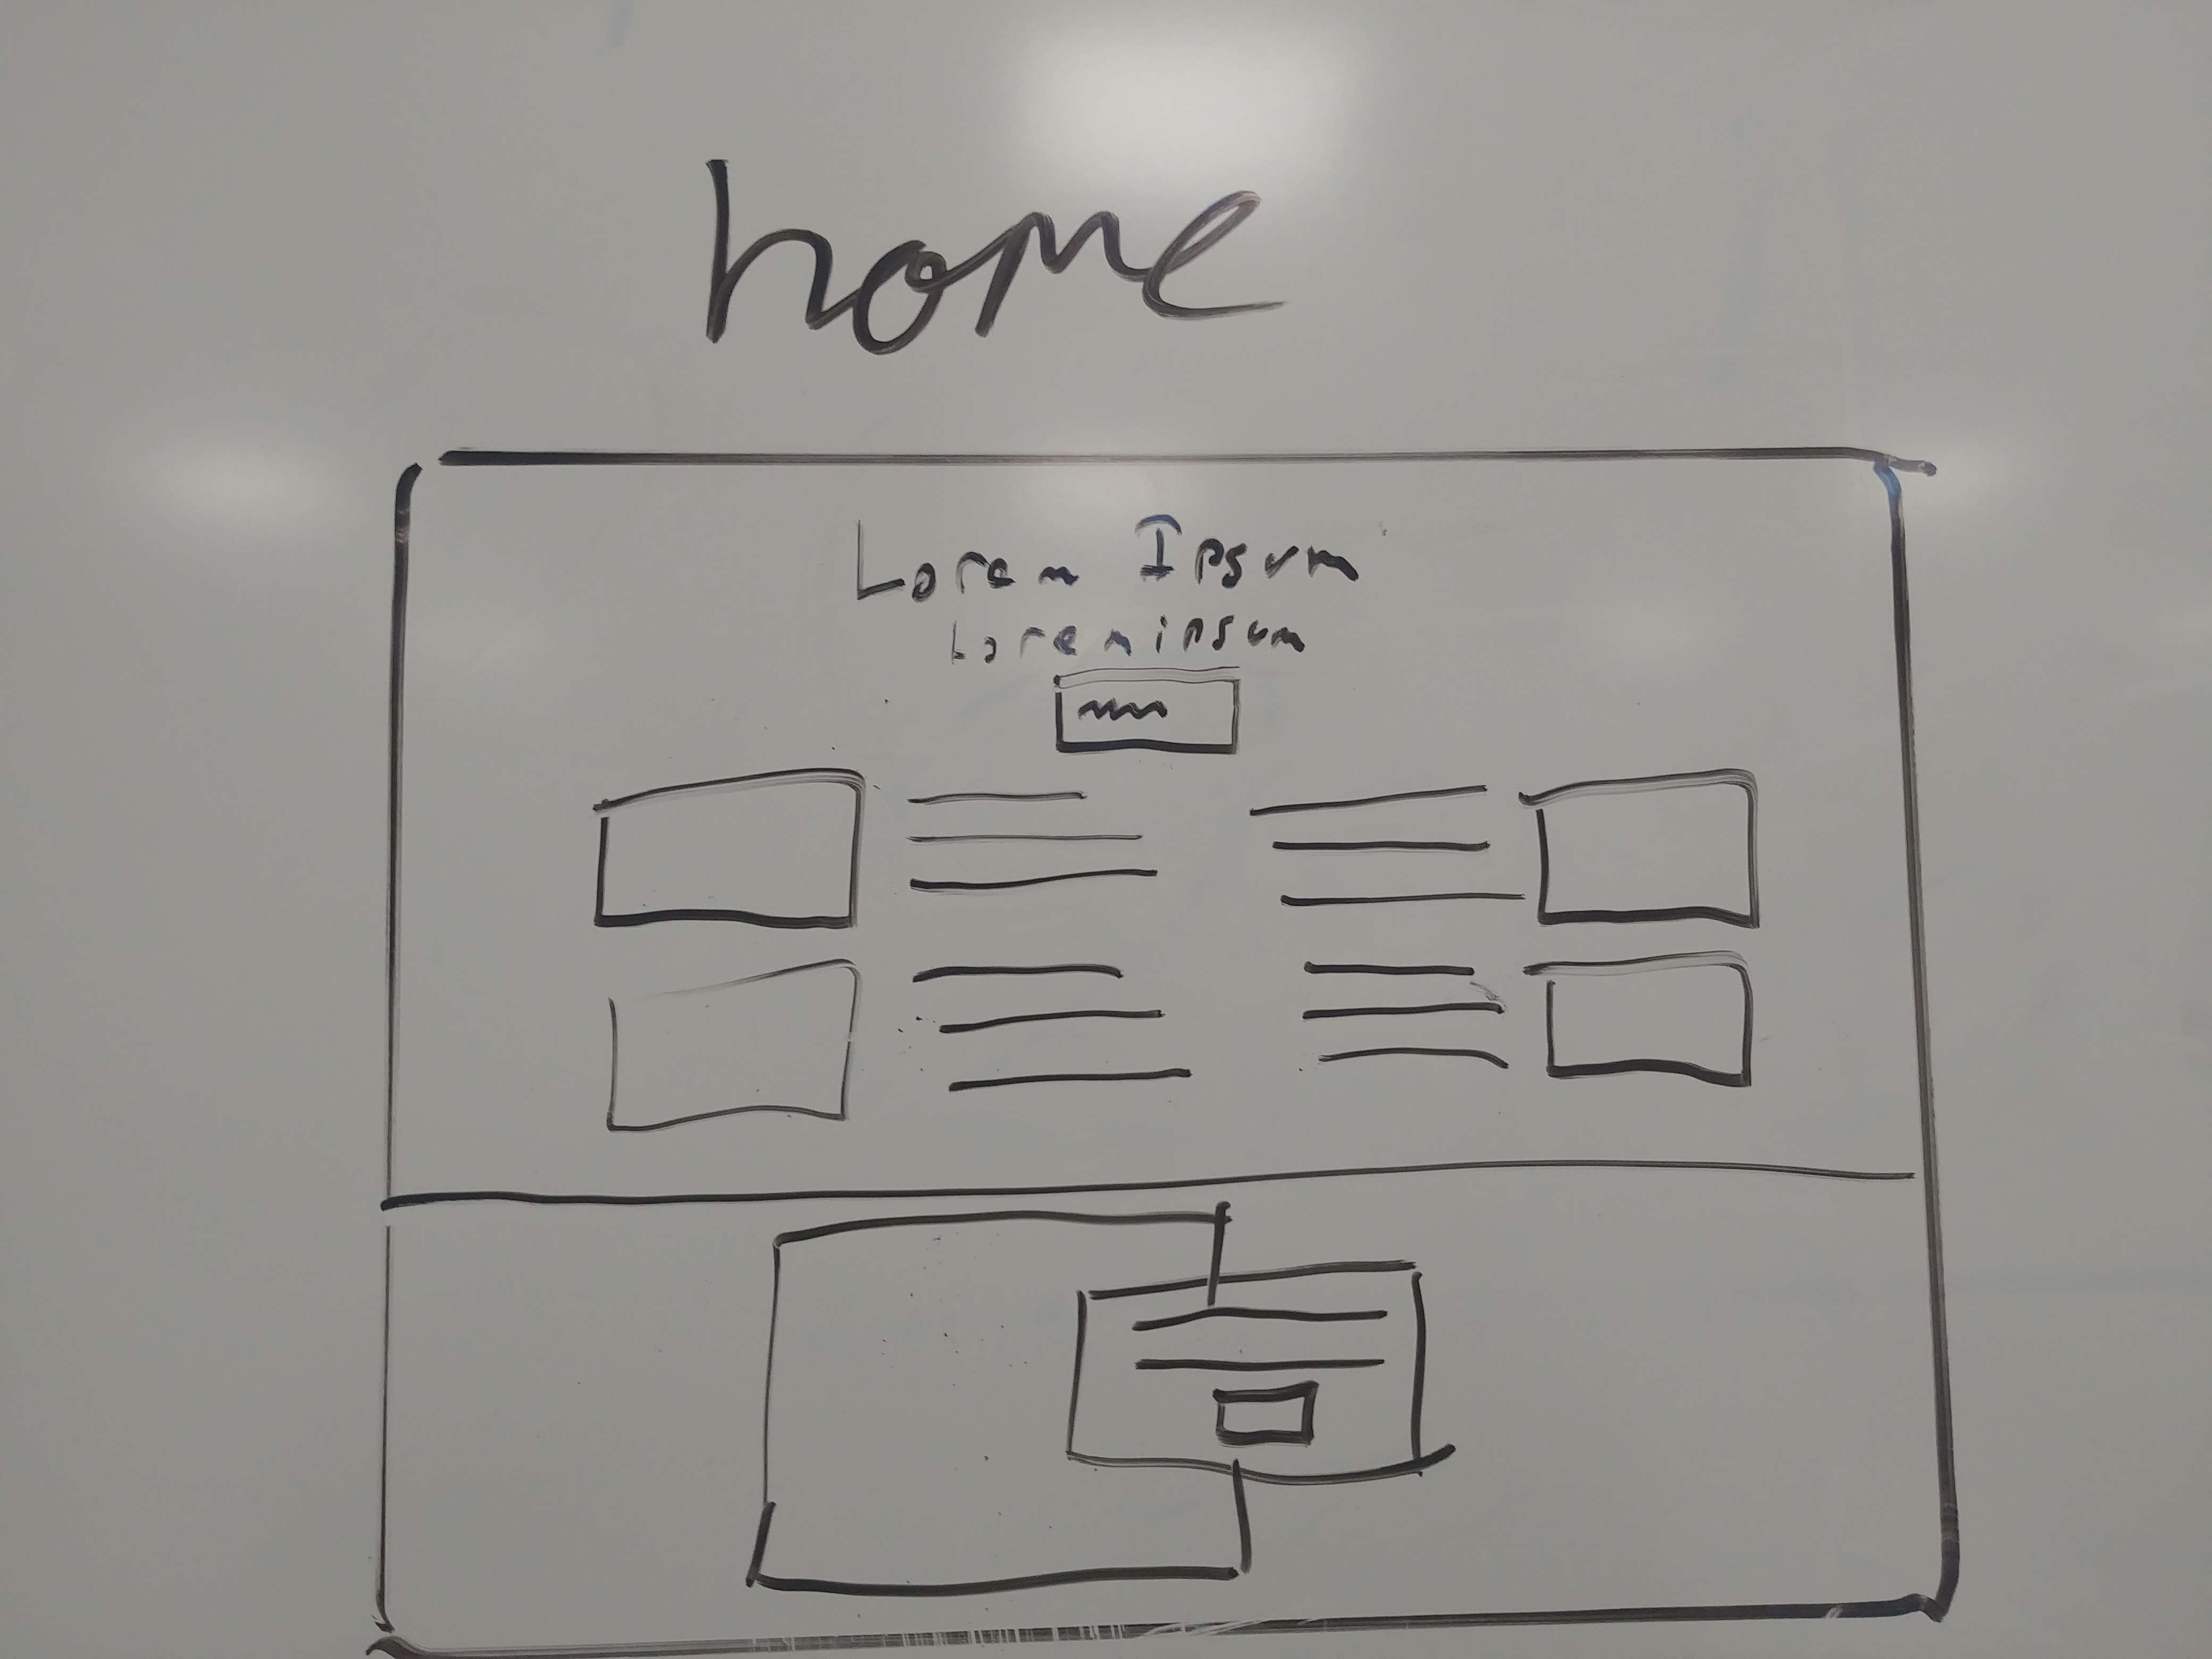 home
Lorem Ipsum
Lorem ipsum